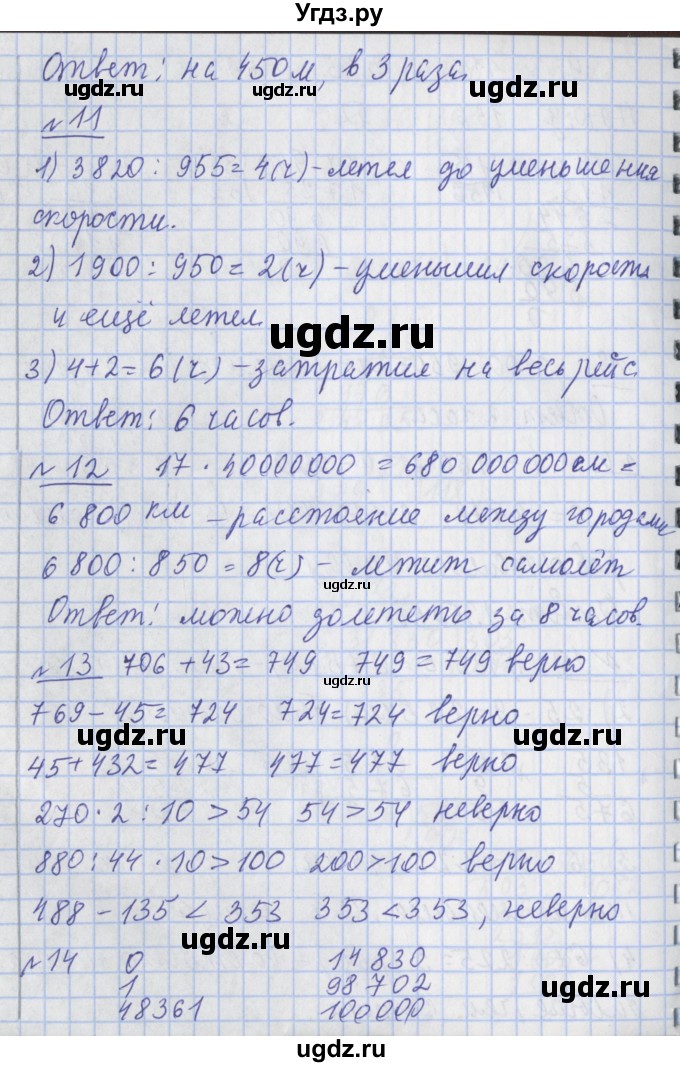 Угдз.ру
Ответ: на 450 м, в 3 раза.
ugdz.ru ugdz.ru ugdz.ru
№ 11
1) 3820 : 955 = 4(ч) - летел до уменьшения
ugdz.ru ugdz.ru
скорости.
2) 1900 : 950 = 2(ч) - уменьшил скорость
и ещё летел.
ugdz.ru
3) 4+2 = 6(ч) - затратил на весь рейс.
ugdz.ru
Ответ: 6 часов.
ugdz.ru ugdz.ru
№ 12 17 · 40000000 = 680 000 000 см =
6 800 км - расстояние между городами
ugdz.ru
6 800 : 850 = 8(ч) - летит самолёт
ugdz.ru
Ответ: можно долететь за 8 часов.
ugdz.ru
№ 13 706 + 43 = 749 749 = 749 верно
ugdz.ru
769 - 45 = 724 724 = 724 верно
ugdz.ru ugdz.ru
45 + 432 = 477 477 = 477 верно
270 · 2 : 10 > 54 54 > 54 неверно
ugdz.ru
880 : 44 · 10 > 100 200 > 100 верно
ugdz.ru
488 - 135 < 353 353 < 353, неверно
ugdz.ru
№ 14 0 14 830
ugdz.ru
1 98 702
48361 100000
ugdz.ru ugdz.ru
ugdz.ru